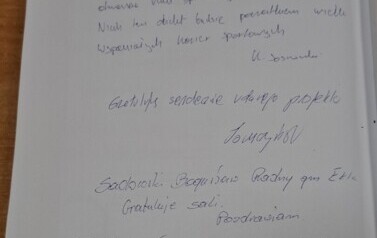 Niech ten obiekt będzie początkiem wielu
wspaniałych karier sportowych
Gratuluję serdecznie udanego projektu
Sadowski Bogusław Radny gm Ełk
Gratuluje sali.
Pozdrawiam